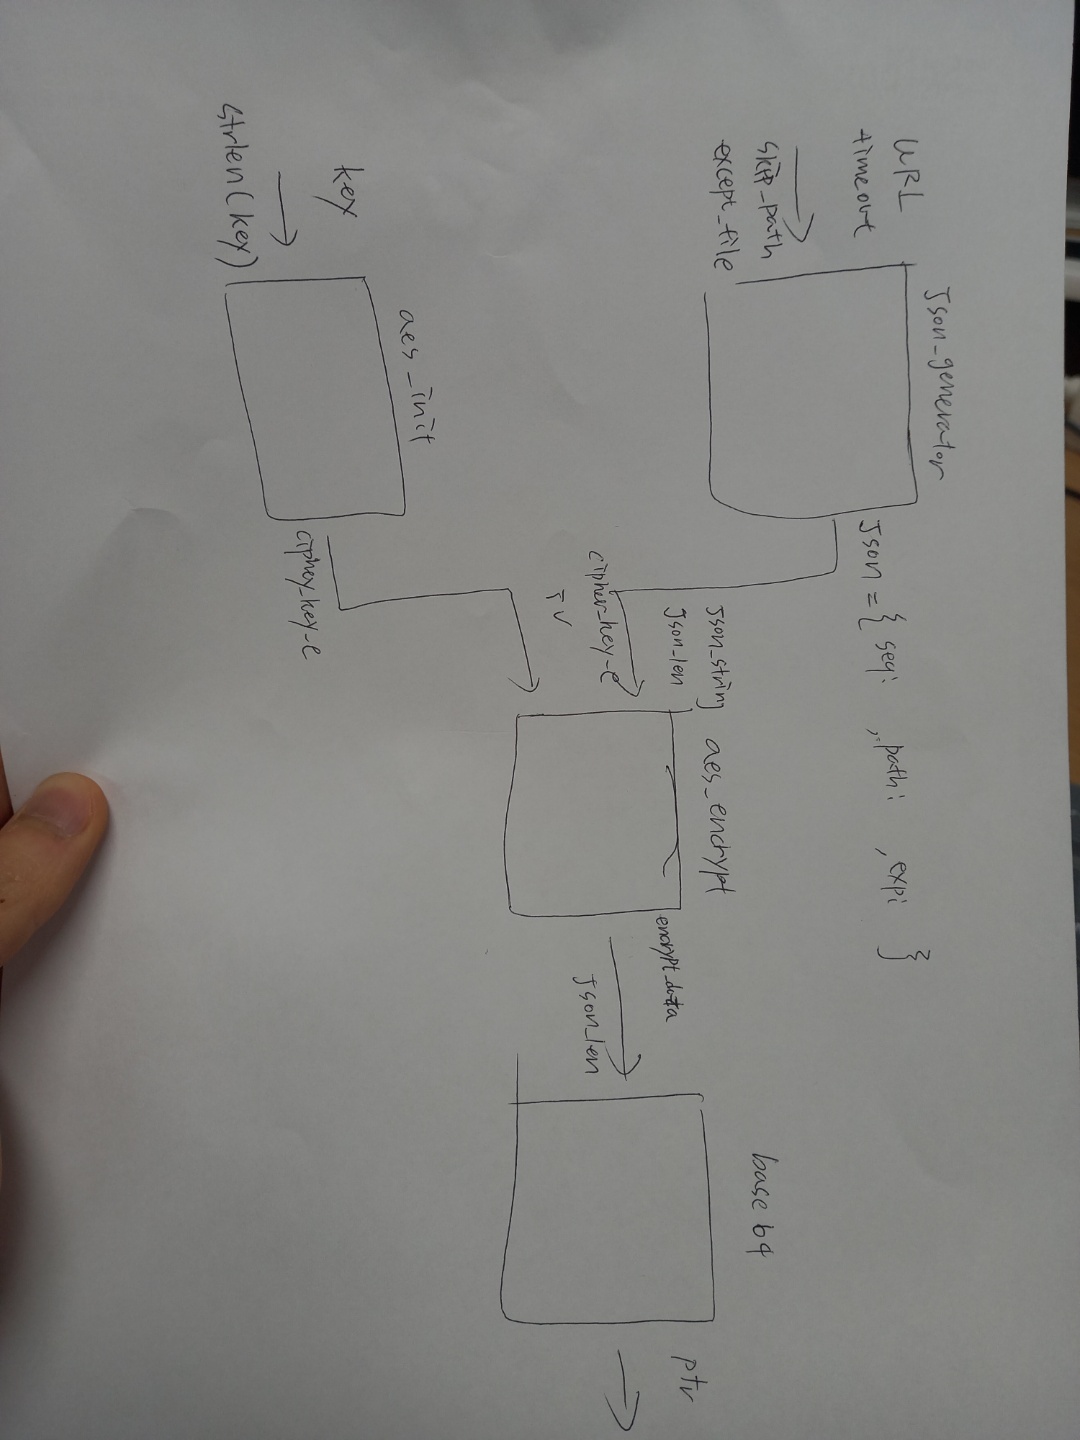 Json_generator
URL
timeout
skip_path
except_file
Json = { seq: , path: , exp: }
Json_string
Json_len
cipher_key_e
iv
aes_encrypt
encrypt_data
Json_len
base 64
ptr
aes_init
key
strlen(key)
ciphey_key_e